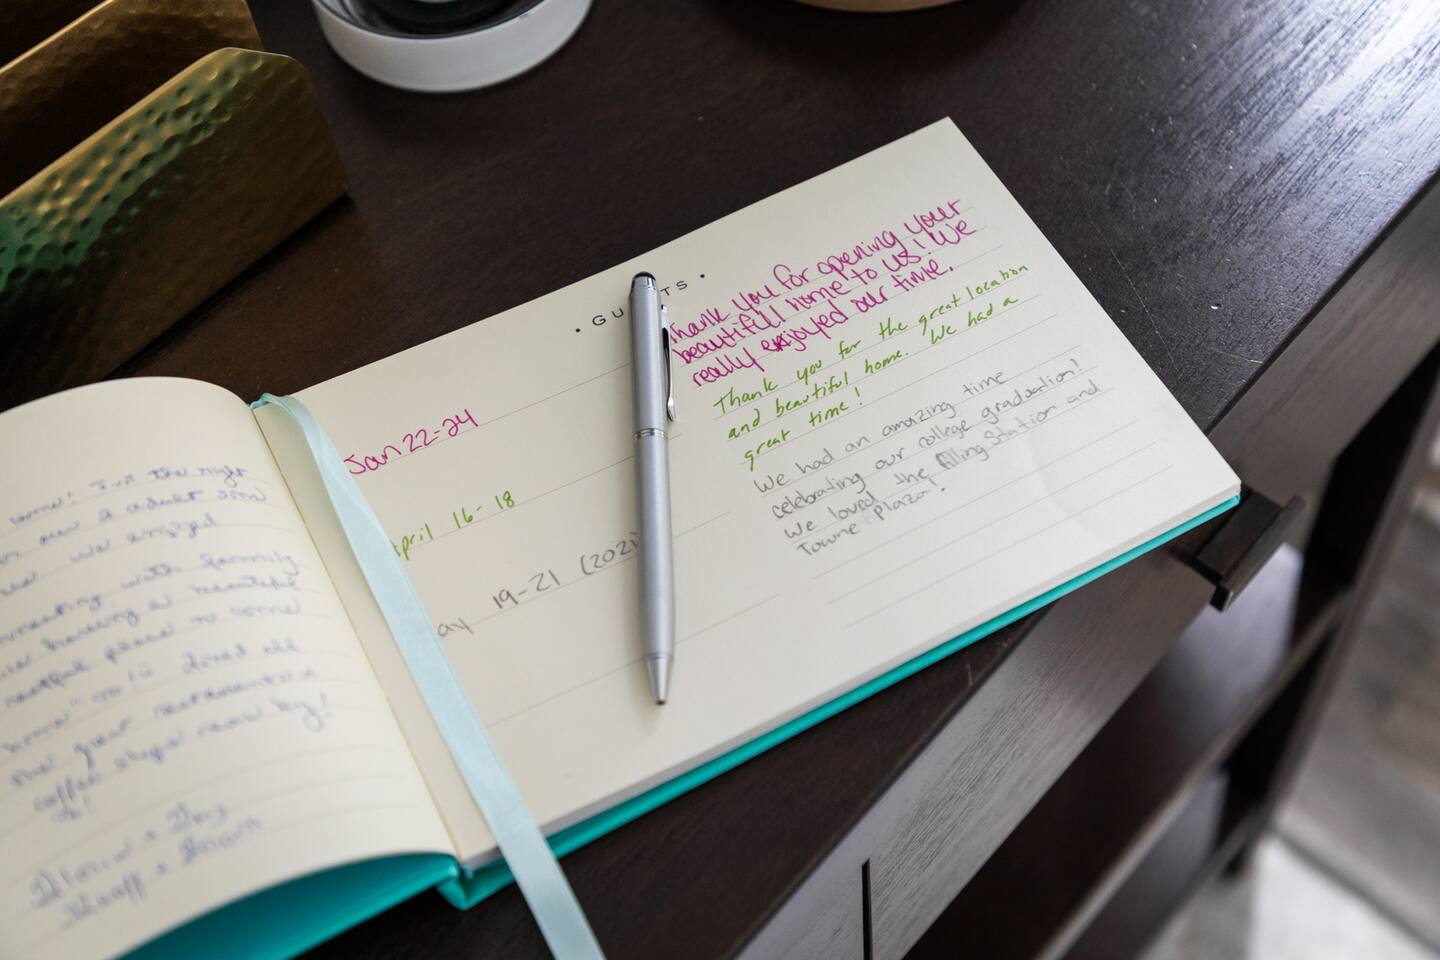 home! Just the night
2 adult
we enjoyed
connecting with family
having a beautiful
restful place to come
home" to! Loved all
the great restaurants &
coffee shops near by!
• GU TS •
Jan 22-24
Thank you for opening your
beautifull home to us! We
really enjoyed our time.
pril 16-18
Thank you for the great location
and beautiful home. We had a
great time!
ay 19-21 (2021
We had an amazing time
celebrating our college graduation!
We loved the filling station and
Towne Plaza.